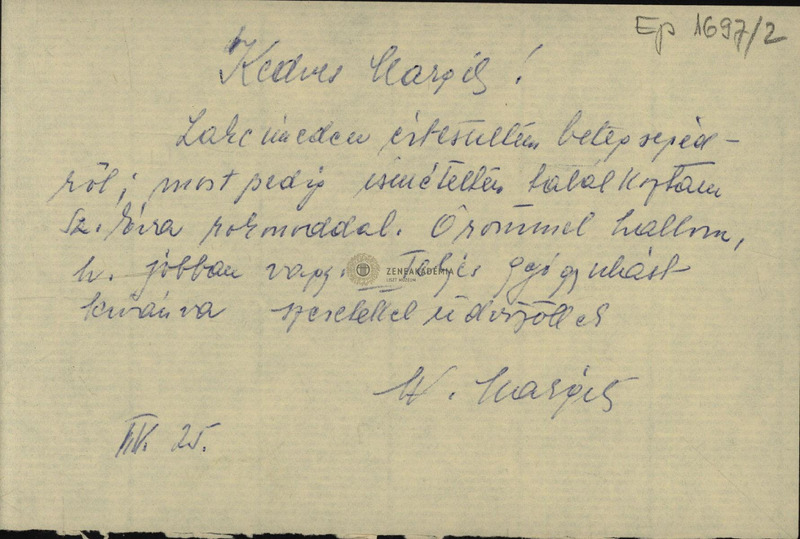 Ep 1697/2
Kedves Margit!
értesültem betegségéd-
ről; most pedig ismételten találkoztam
Sz. Éva rokonoddal. Örömmel hallom,
h. jobban vagy. Teljes gyógyulást
kívánva szeretettel üdvözöllek
W. Margit
25.
ZENEAKADÉMIA
LISZT MÚZEUM